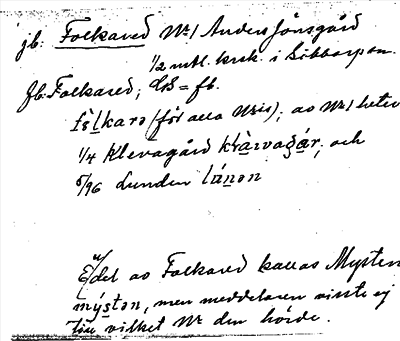 jb. Folkared Nr 1 Anders Jönsgård
1/2 mtl. krsk. i Sibbarp sn.
Jb: Folkared; GS = fb.
fòlkarə (för alla Nris); av Nr 1 heter
1/4 Klevagård och
5/96 Lunden lúnən
En del av Folkared kallas Mysten
mýstən, men meddelaren visste ej
till vilket Nr den hörde.